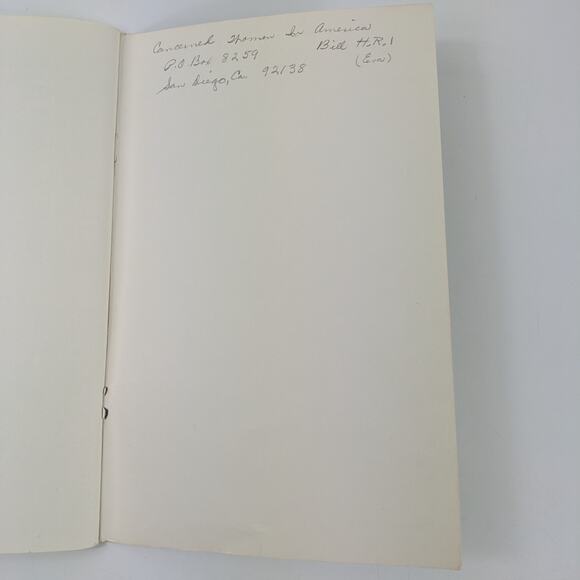 Concerned Women In America
P.O Box 8259 Bill H.R.1
San Diego, Ca. 92138 (Era)